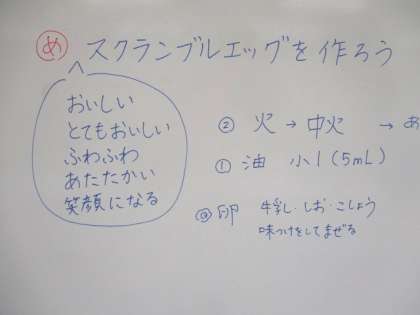 め スクランブルエッグを作ろう
おいしい
とてもおいしい
ふわふわ
あたたかい
笑顔になる
② 火 → 中火 → あ
① 油 小1(5mL)
⓪ 卵 牛乳・しお・こしょう
味つけをしてまぜる